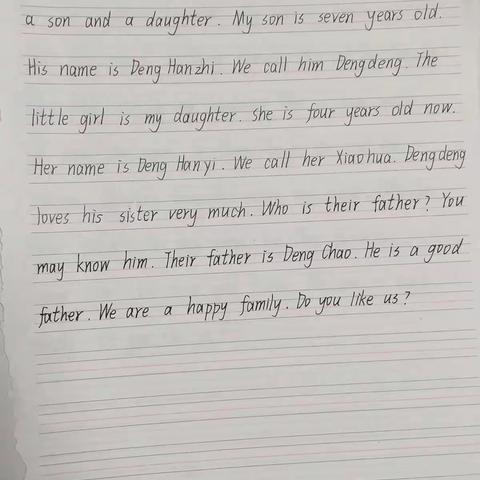 a son and a daughter. My son is seven years old.
His name is Deng Hanzhi. We call him Dengdeng. The
little girl is my daughter. She is four years old now.
Her name is Deng Hanyi. We call her Xiaohua. Dengdeng
loves his sister very much. Who is their father? You
may know him. Their father is Deng Chao. He is a good
father. We are a happy family. Do you like us?